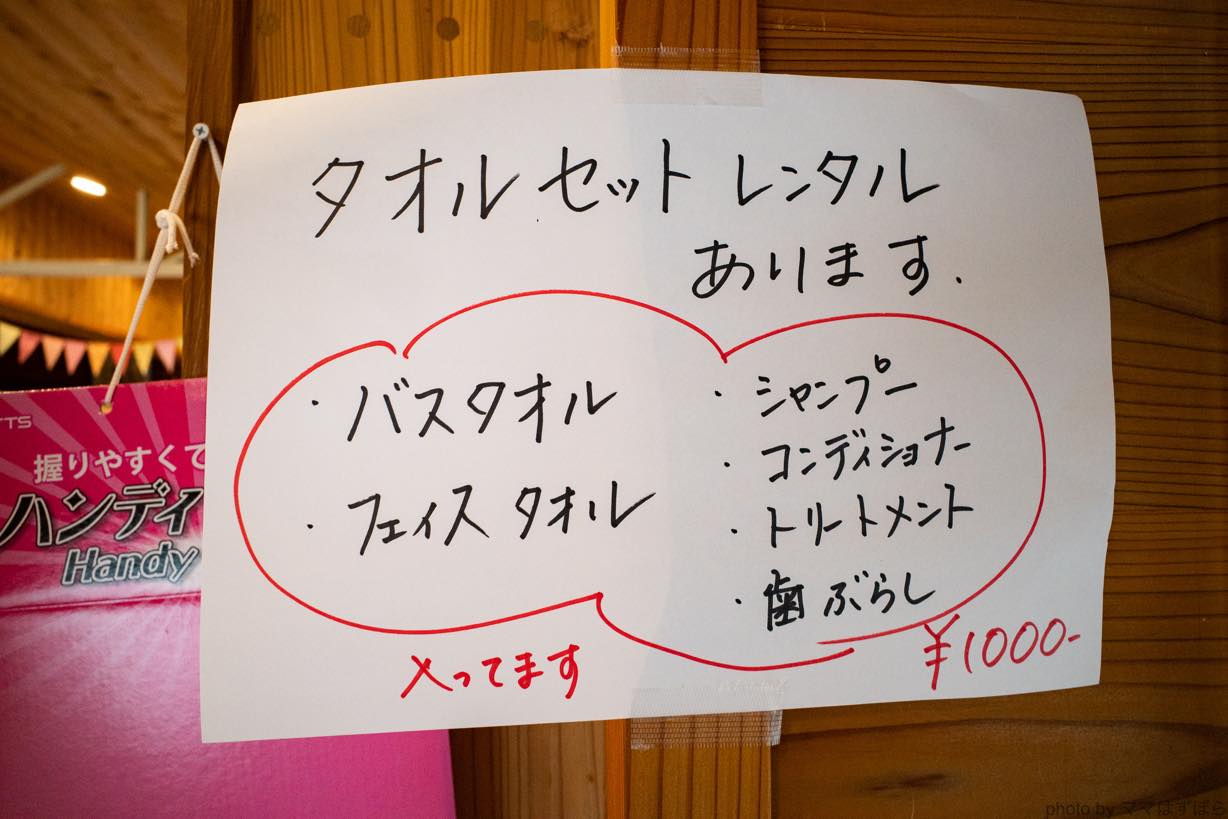 タオルセットレンタル
あります.
・バスタオル
・フェイスタオル
・シャンプー
・コンディショナー
・トリートメント
・歯ぶらし
入ってます
¥1000-
TTS
握りやすくて
ハンディ
Handy
photo by ママはずぼら